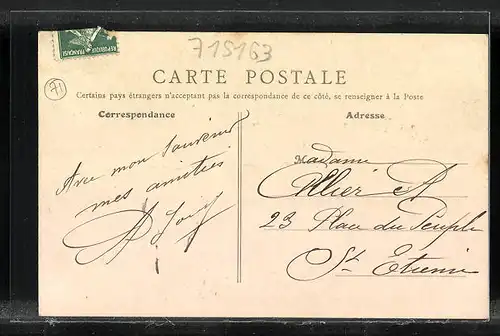 REPUBLIQUE FRANÇAISE
715163
71
CARTE POSTALE
Certains pays étrangers n'acceptant pas la correspondance de ce côté, se renseigner à la Poste
Correspondance
Adresse
Avec mon souvenir
mes amitiés
Madame
Ollier A
23 Place du Peuple
St Etienne